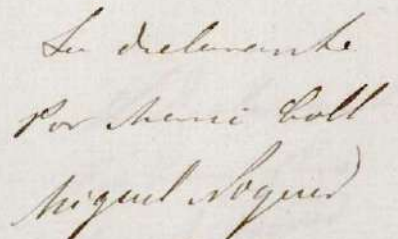 La declarante
Por Maria Coll
Miguel Noguer